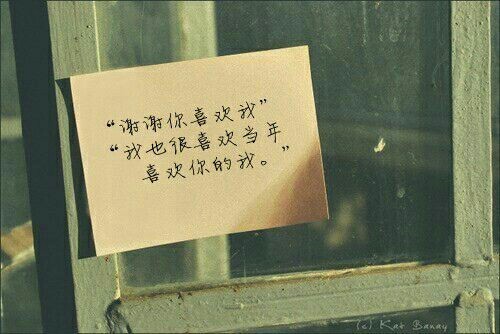 “谢谢你喜欢我”
“我也很喜欢当年
喜欢你的我。”
(c) Kat Banay